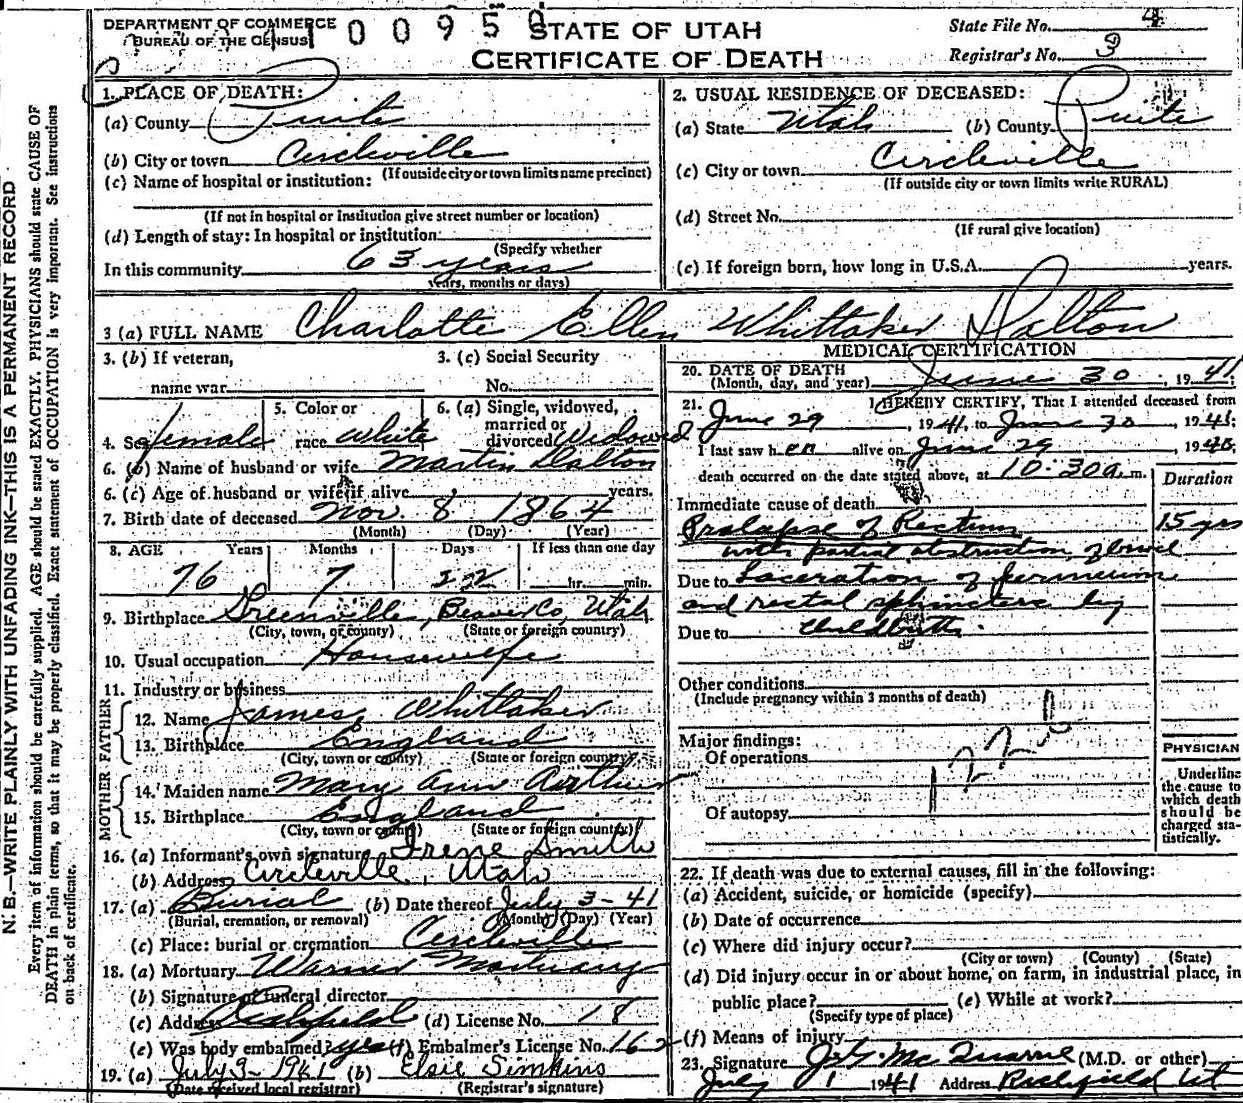 DEPARTMENT OF COMMERCE
BUREAU OF THE CENSUS
0 0 9 5 0
STATE OF UTAH
CERTIFICATE OF DEATH
State File No. 4
Registrar's No. 3
N. B.—WRITE PLAINLY WITH UNFADING INK—THIS IS A PERMANENT RECORD
Every item of information should be carefully supplied. AGE should be stated EXACTLY. PHYSICIANS should state CAUSE OF
DEATH in plain terms, so that it may be properly classified. Exact statement of OCCUPATION is very important. See instructions
on back of certificate.
1. PLACE OF DEATH:
(a) County Piute
(b) City or town Circleville
(If outside city or town limits name precinct)
(c) Name of hospital or institution:
(If not in hospital or institution give street number or location)
(d) Length of stay: In hospital or institution
(Specify whether
In this community 63 years
years, months or days)
2. USUAL RESIDENCE OF DECEASED:
(a) State Utah (b) County Piute
(c) City or town Circleville
(If outside city or town limits write RURAL)
(d) Street No.
(If rural give location)
(c) If foreign born, how long in U.S.A. years.
3 (a) FULL NAME Charlotte Ellen Whittaker Dalton
3. (b) If veteran,
name war
3. (c) Social Security
No.
4. Sex female
5. Color or
race White
6. (a) Single, widowed,
married or
divorced Widowed
6. (b) Name of husband or wife Martin Dalton
6. (c) Age of husband or wife if alive years.
7. Birth date of deceased Nov. 8 1864
(Month) (Day) (Year)
8. AGE Years Months Days If less than one day
76 7 22 hr. min.
9. Birthplace Greenville, Beaver Co, Utah
(City, town, or county) (State or foreign country)
10. Usual occupation Housewife
11. Industry or business
FATHER
12. Name James Whittaker
13. Birthplace England
(City, town or county) (State or foreign country)
MOTHER
14. Maiden name Mary Ann Arthur
15. Birthplace England
(City, town or county) (State or foreign country)
16. (a) Informant's own signature Irene Smith
(b) Address Circleville, Utah
17. (a) Burial (b) Date thereof July 3-41
(Burial, cremation, or removal) (Month) (Day) (Year)
(c) Place: burial or cremation Circleville
18. (a) Mortuary Warner Mortuary
(b) Signature of funeral director
(c) Address Richfield (d) License No. 18
(e) Was body embalmed? yes (f) Embalmer's License No. 162
19. (a) July 3-1941 (b) Elsie Simkins
(Date received local registrar) (Registrar's signature)
MEDICAL CERTIFICATION
20. DATE OF DEATH
(Month, day, and year) June 30, 1941
21. I HEREBY CERTIFY, That I attended deceased from
June 29, 1941, to June 30, 1941;
I last saw her alive on June 29 19
death occurred on the date stated above, at 10:30a m.
Duration
Immediate cause of death
Prolapse of Rectum 15 yrs
with partial obstruction of bowel
Due to Laceration of perineum
and rectal sphincters by
Due to childbirth
Other conditions
(Include pregnancy within 3 months of death)
Major findings:
Of operations
Of autopsy
PHYSICIAN
Underline
the cause to
which death
should be
charged sta-
tistically.
22. If death was due to external causes, fill in the following:
(a) Accident, suicide, or homicide (specify)
(b) Date of occurrence
(c) Where did injury occur?
(City or town) (County) (State)
(d) Did injury occur in or about home, on farm, in industrial place, in
public place? (e) While at work?
(Specify type of place)
(f) Means of injury
23. Signature J. G. McQuarrie (M.D. or other)
July 1 1941 Address Richfield Ut